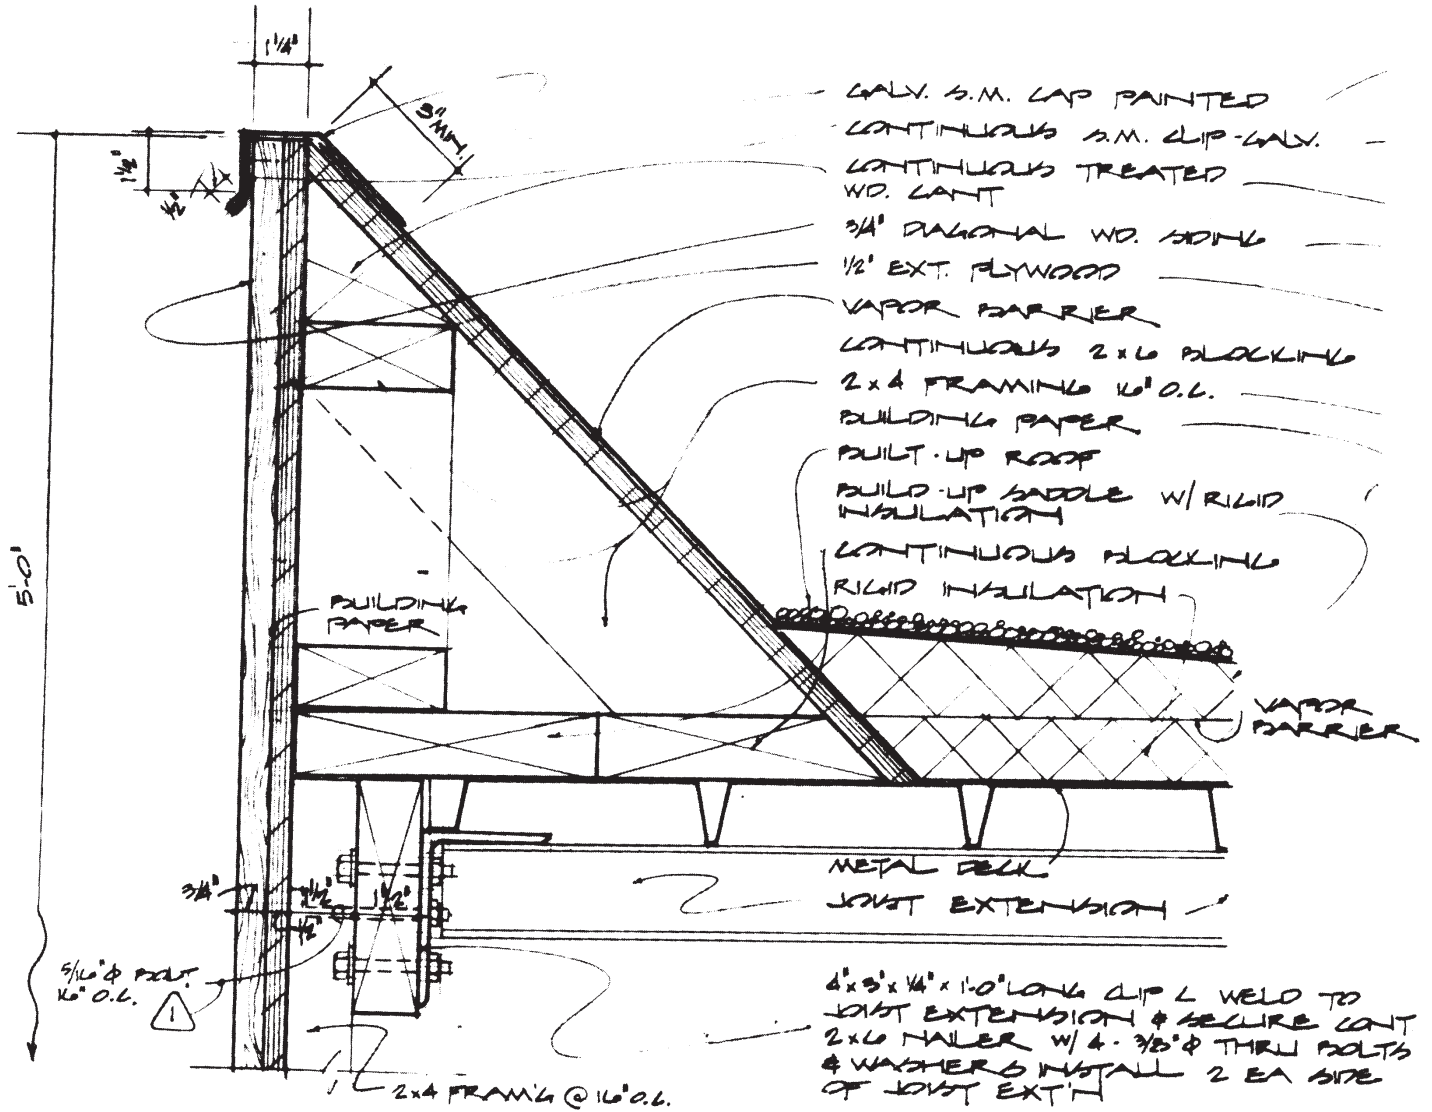 1 1/4"
3" MIN.
1 1/2"
1/2"
GALV. S.M. CAP PAINTED
CONTINUOUS S.M. CLIP-GALV.
CONTINUOUS TREATED
WD. CANT
3/4" DIAGONAL WD. SIDING
1/2" EXT. PLYWOOD
VAPOR BARRIER
CONTINUOUS 2x6 BLOCKING
2x4 FRAMING 16" O.C.
BUILDING PAPER
BUILT-UP ROOF
BUILD-UP SADDLE W/ RIGID
INSULATION
CONTINUOUS BLOCKING
RIGID INSULATION
5'-0"
BUILDING
PAPER
VAPOR
BARRIER
METAL DECK
JOIST EXTENSION
3/4"
1 1/2"
1 1/2"
1/2"
5/16" φ BOLT
16" O.C.
1
4" x 3" x 1/4" x 1'-0" LONG CLIP L WELD TO
JOIST EXTENSION & SECURE CONT
2x6 NAILER W/ 4 - 3/8" φ THRU BOLTS
& WASHERS INSTALL 2 EA SIDE
OF JOIST EXT'N
2x4 FRAM'G @ 16" O.C.